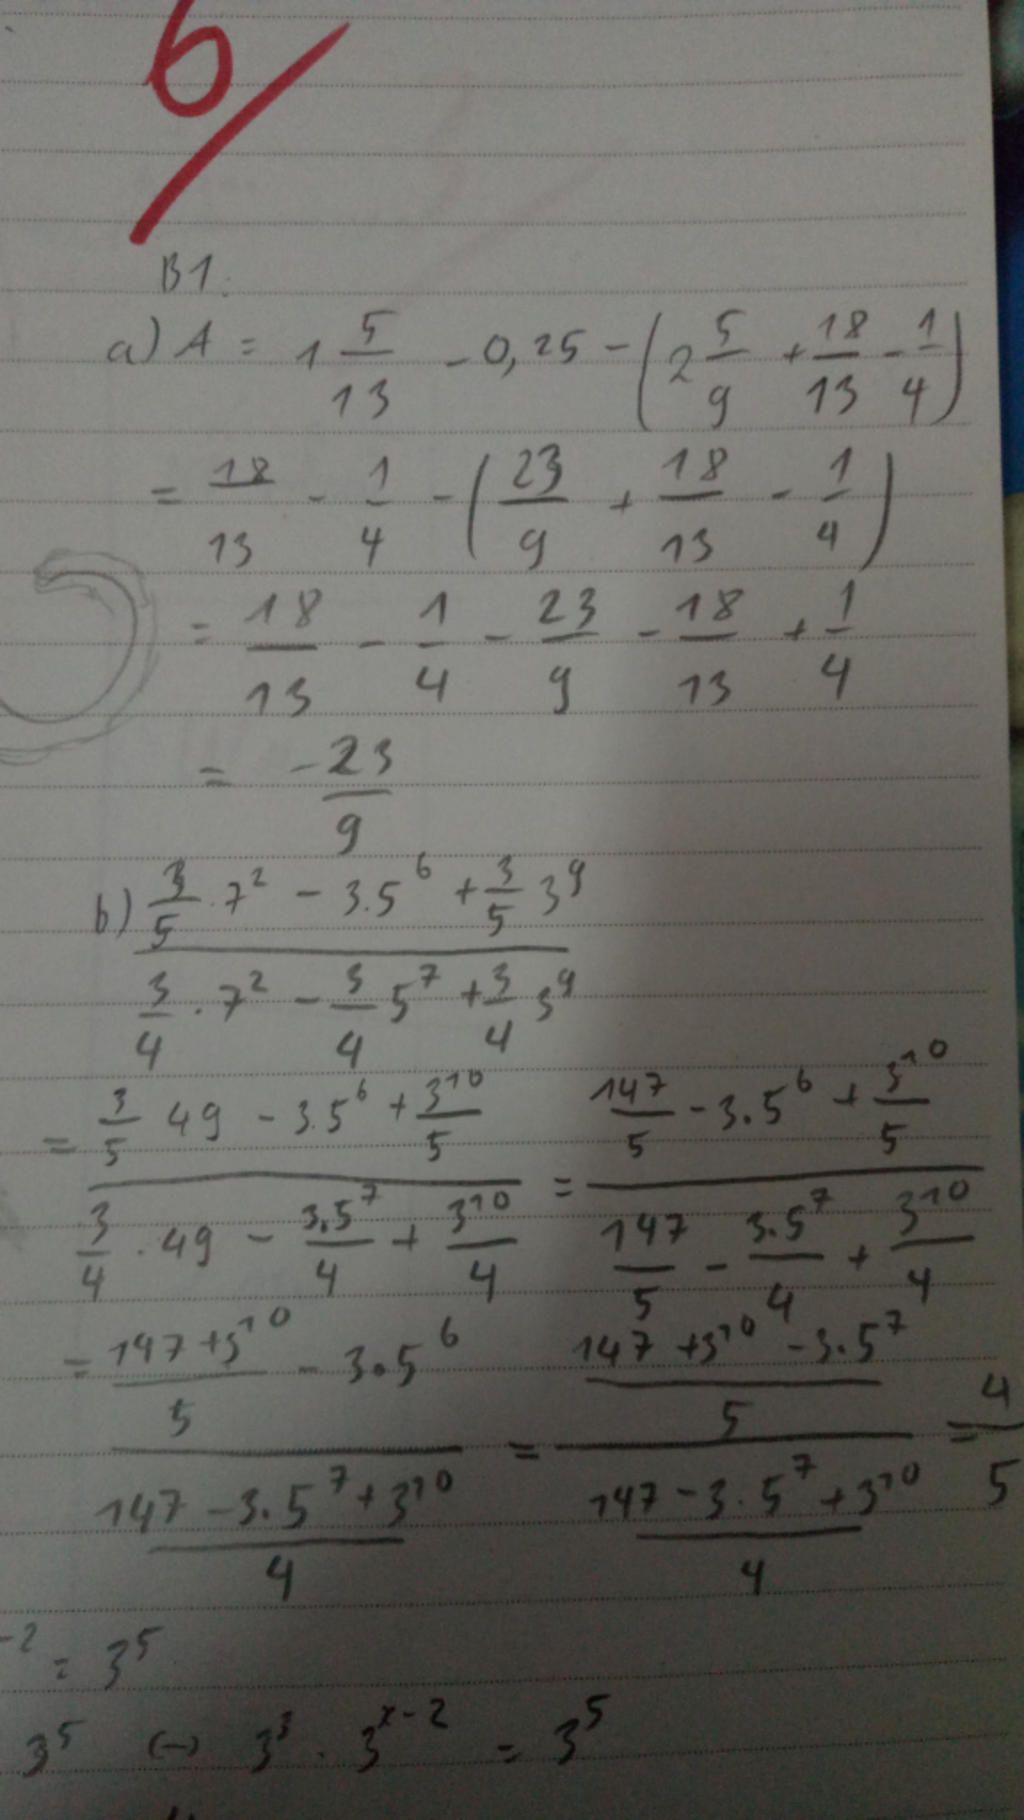 6/
B1.
a) A = 1 5/13 - 0,25 - (2 5/9 + 18/13 - 1/4)
= 18/13 - 1/4 - (23/9 + 18/13 - 1/4)
= 18/13 - 1/4 - 23/9 - 18/13 + 1/4
= -23/9
b) (3/5 . 7² - 3.5⁶ + 3/5 3⁹)/(3/4 . 7² - 3/4 5⁷ + 3/4 3⁹)
= (3/5 49 - 3.5⁶ + 3¹⁰/5)/(3/4 . 49 - 3.5⁷/4 + 3¹⁰/4) = (147/5 - 3.5⁶ + 3¹⁰/5)/(147/5 - 3.5⁷/4 + 3¹⁰/4)
= ((147 + 3¹⁰)/5 - 3.5⁶)/((147 - 3.5⁷ + 3¹⁰)/4) = ((147 + 3¹⁰ - 3.5⁷)/5)/((147 - 3.5⁷ + 3¹⁰)/4) = 4/5
⁻² = 3⁵
3⁵ (-) 3³ . 3ˣ⁻² = 3⁵